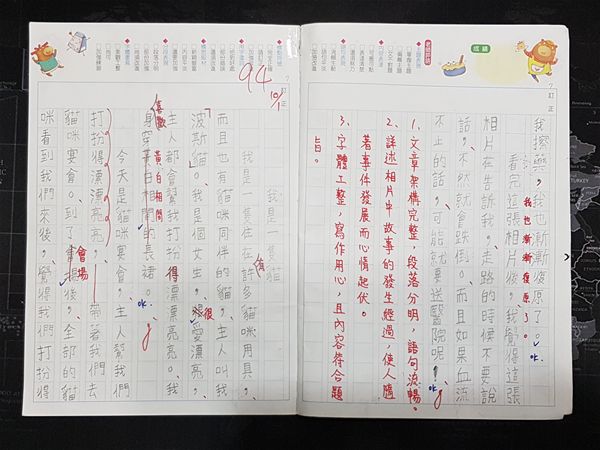 我擦藥，我也漸漸復原了。
我也漸漸復原了。
ok
看完這張相片後，我覺得這張
相片在告訴我。走路的時候不要說
話，不然就會跌倒。而且如果血流
不止的話，可能就要送醫院呢！
ok
1、文章架構完整，段落分明，語句流暢。
2、詳述相片中故事的發生經過，使人隨
著事件發展而心情起伏。
3、字體工整，寫作用心，且內容符合題
旨。
成績
訂正
94
10/1
訂正
我是一隻貓
我是一隻住在許多貓咪用具，
有
而且也有貓咪同伴的貓，主人叫我
「波斯貓」。我是個女生，很愛漂亮，
很
主人都會幫我打扮得漂漂亮亮。我
喜歡
身穿黃白相間的長裙。
黃白相間
ok
今天是貓咪宴會，主人幫我們
打扮得漂漂亮亮，帶著我們去
貓咪宴會。到了會場後，全部的貓
會場
咪看到我們來後，覺得我們打扮得